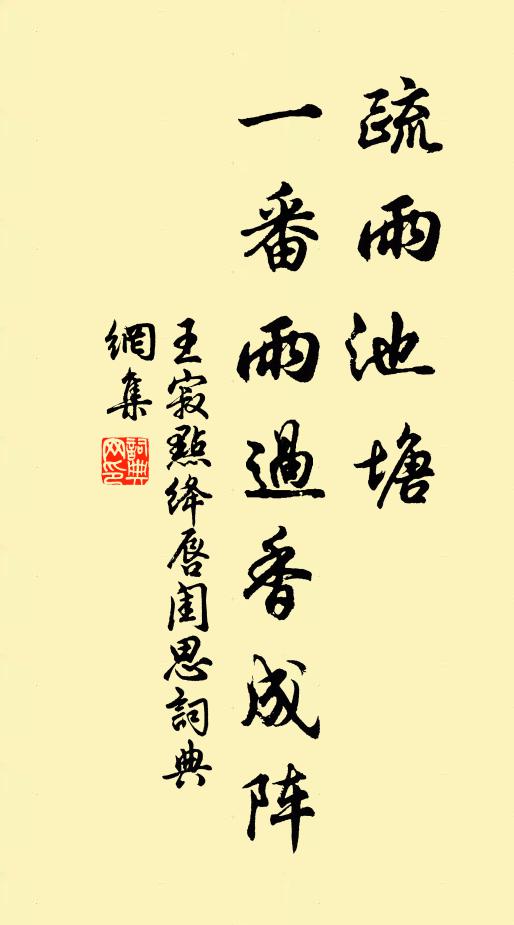 疏雨池塘
一番雨過香成阵
王寂點绛唇闺思詞典
網集
詞典网印